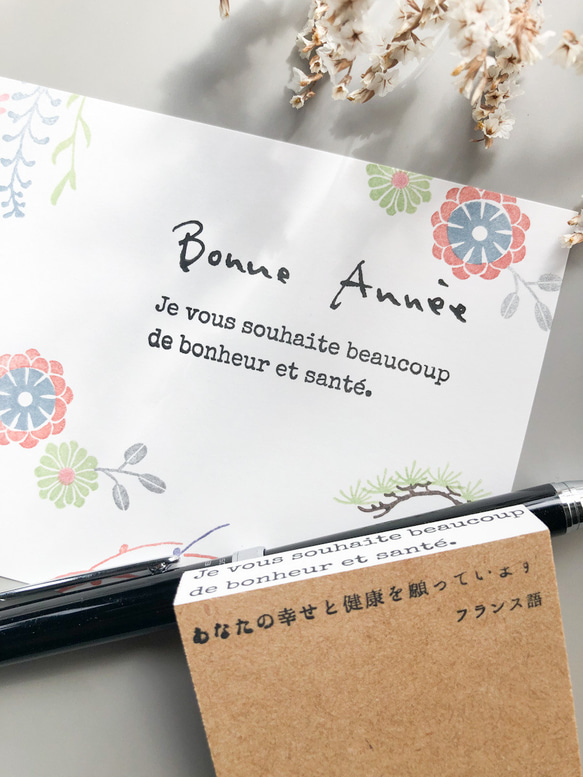 Bonne Année
Je vous souhaite beaucoup
de bonheur et santé.
Je vous souhaite beaucoup
de bonheur et santé.
あなたの幸せと健康を願っています
フランス語